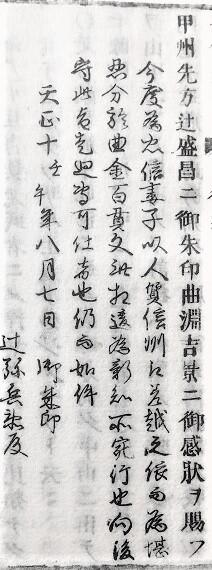 甲州先方辻盛昌ニ御朱印曲淵吉景ニ御感状ヲ賜フ
今度為忠信妻子以人質信州江差越之依而為堪
忍分於曲金百貫文無相違為新知所宛行也向後
守此旨走廻者可仕者也仍而如件
天正十壬午年八月七日 御朱印
辻弥兵衛殿